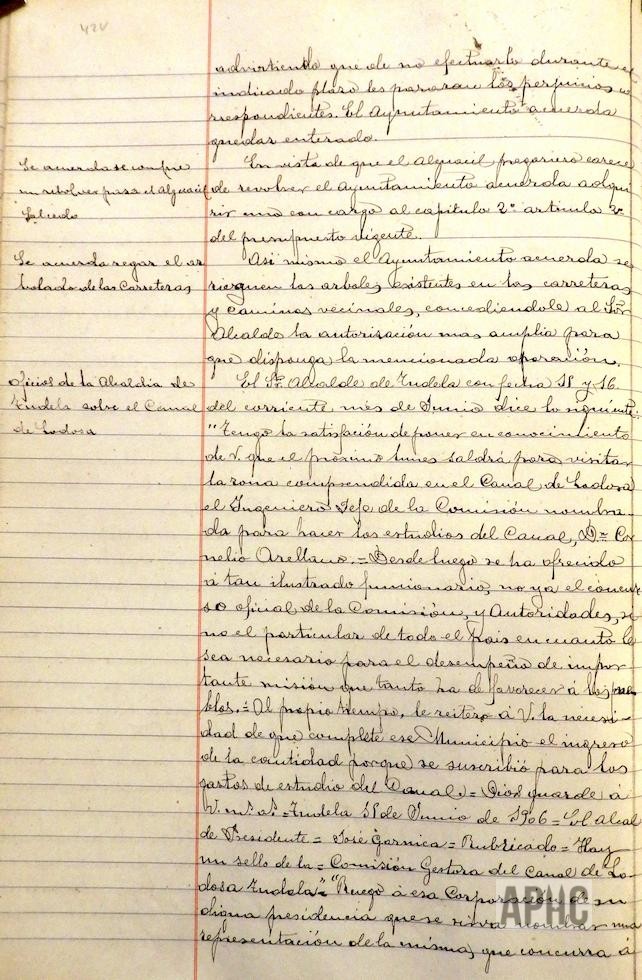 424
advirtiendo que de no efectuarlo durante el
indicado plazo les pararan los perjuicios co
rrespondientes. El Ayuntamiento acuerda
quedar enterado.
Se acuerda se compre
un revolver para el Alguacil
Salcedo
En vista de que el Alguacil pregonero carece
de revolver el Ayuntamiento acuerda adqui
rir uno con cargo al capitulo 2º articulo 3º
del presupuesto vigente.
Se acuerda regar el ar
bolado de las Carreteras
Asi mismo el Ayuntamiento acuerda se
rieguen los arboles existentes en las carreteras
y caminos vecinales, concediendole al Sor
Alcalde la autorización mas amplia para
que disponga la mencionada operación.
oficios de la Alcaldia de
Tudela sobre el Canal
de Lodosa
El Sr. Alcalde de Tudela con fecha 15 y 16
del corriente mes de Junio dice lo siguiente:
"Tengo la satisfación de poner en conocimiento
de V. que el próximo lunes saldrá para visitar
la zona comprendida en el Canal de Lodosa
el Ingeniero Jefe de la Comisión nombra-
da para hacer los estudios del Canal, Dn Cor
nelio Arellano.=Desde luego se ha ofrecido
á tan ilustrado funcionario, no ya el concur
so oficial de la Comisión, y Autoridades, si
no el particular de todo el pais en cuanto le
sea necesario para el desempeño de impor
tante misión que tanto ha de favorecer á los pue
blos.=Al propio tiempo, le reitero á V. la necesi-
dad de que complete ese Municipio el ingreso
de la cantidad porque se suscribió para los
gastos de estudio del Canal=Dios guarde á
V. ms. as.=Tudela 15 de Junio de 1906=El Alcal
de Presidente=José Garnica=Rubricado=Hay
un sello de la=Comisión Gestora del Canal de Lo-
dosa Tudela" "Ruego á esa Corporación de su
digna presidencia que se sirva nombrar una
representación de la misma, que concurra á
APHC